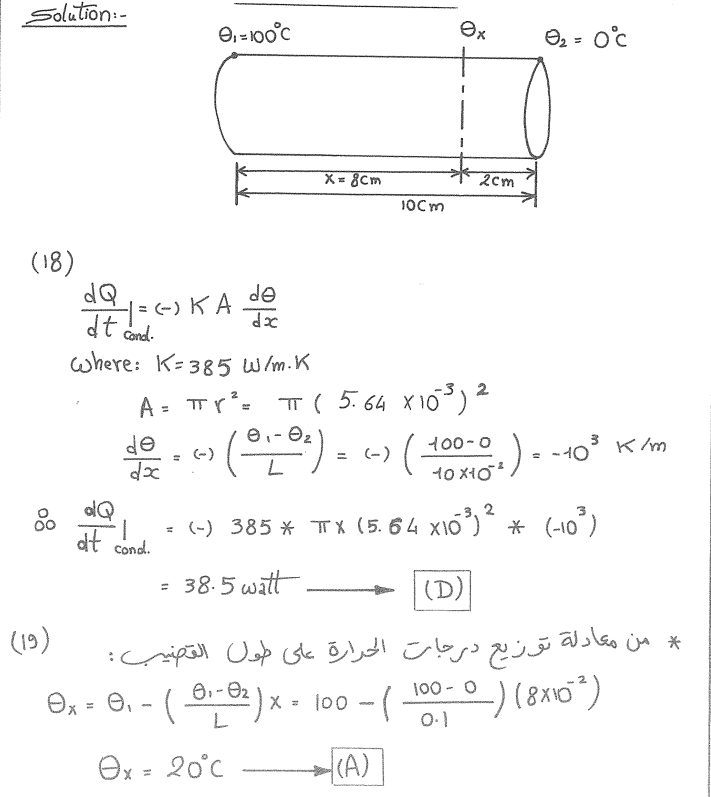 Solution:-
θ₁=100°C θₓ θ₂ = 0°C
x = 8cm 2cm
10cm
(18)
dQ/dt|cond. = (-) K A dθ/dx
where: K=385 W/m.K
A = πr² = π ( 5.64 ×10⁻³ )²
dθ/dx = (-) ( (θ₁-θ₂)/L ) = (-) ( (100-0)/(10×10⁻²) ) = -10³ K/m
∴ dQ/dt|cond. = (-) 385 * π× (5.64 ×10⁻³)² * (-10³)
= 38.5 watt → (D)
(19) * من معادلة توزيع درجات الحرارة على طول القضيب :
θₓ = θ₁ - ( (θ₁-θ₂)/L ) x = 100 - ( (100-0)/0.1 ) (8×10⁻²)
θₓ = 20°C → (A)